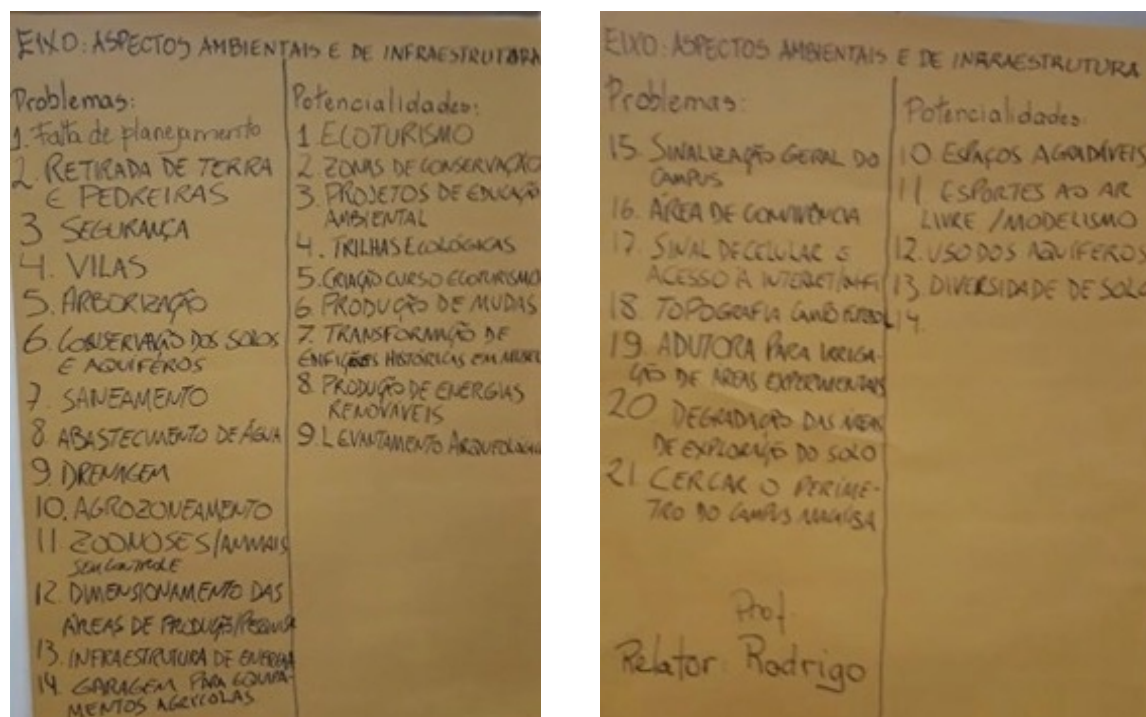 EIXO: ASPECTOS AMBIENTAIS E DE INFRAESTRUTURA
Problemas:
1. Falta de planejamento
2. RETIRADA DE TERRA
E PEDREIRAS
3 SEGURANÇA
4. VILAS
5. ARBORIZAÇÃO
6. CONSERVAÇÃO DOS SOLOS
E AQUIFÉROS
7. SANEAMENTO
8. ABASTECIMENTO DE ÁGUA
9 DRENAGEM
10. AGROZONEAMENTO
11 ZOONOSES/ANIMAIS
SEM CONTROLE
12. DIMENSIONAMENTO DAS
ÁREAS DE PRODUÇÃO/PESQUISA
13. INFRAESTRUTURA DE ENERGIA
14. GARAGEM PARA EQUIPA-
MENTOS AGRÍCOLAS
Potencialidades:
1 ECOTURISMO
2. ZONAS DE CONSERVAÇÃO
3. PROJETOS DE EDUCAÇÃO
AMBIENTAL
4. TRILHAS ECOLÓGICAS
5. CRIAÇÃO CURSO ECOTURISMO
6. PRODUÇÃO DE MUDAS
7. TRANSFORMAÇÃO DE
HISTÓRICAS EM MUSEU
8. PRODUÇÃO DE ENERGIAS
RENOVÁVEIS
9. LEVANTAMENTO ARQUEOLÓGICO
EIXO: ASPECTOS AMBIENTAIS E DE INFRAESTRUTURA
Problemas:
15. SINALIZAÇÃO GERAL DO
CAMPUS
16. ÁREA DE CONVIVÊNCIA
17. SINAL DE CELULAR E
ACESSO À INTERNET/WIFI
18 TOPOGRAFIA CAMPO FUTEBOL
19. ADUTORA PARA IRRIGA-
ÇÃO DE ÁREAS EXPERIMENTAIS
20 DEGRADAÇÃO DAS ÁREAS
DE EXPLORAÇÃO DO SOLO
21 CERCAR O PERÍME-
TRO DO CAMPUS MACAÍBA
Potencialidades:
10. ESPAÇOS AGRADÁVEIS
11. ESPORTES AO AR
LIVRE / MODELISMO
12. USO DOS AQUÍFEROS
13. DIVERSIDADE DE SOLO
14.
Prof.
Relator: Rodrigo